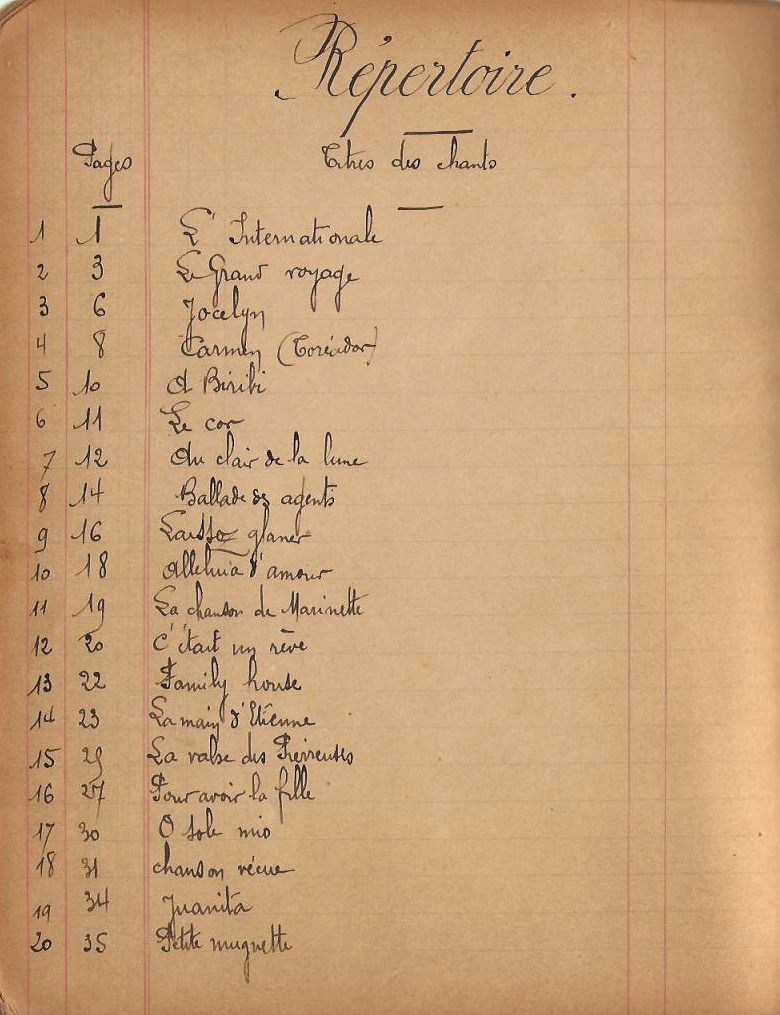 Répertoire.
Pages Titres des chants
1 1 L'Internationale
2 3 Le Grand voyage
3 6 Jocelyn
4 8 Carmen (Toréador)
5 10 A Biribi
6 11 Le cor
7 12 Au clair de la lune
8 14 Ballade des agents
9 16 Laissez glaner
10 18 Alleluia d'amour
11 19 La chanson de Marinette
12 20 C'était un rêve
13 22 Family house
14 23 La main d'Etienne
15 25 La valse des Pierreuses
16 27 Pour avoir la fille
17 30 O sole mio
18 31 chanson vécue
19 34 Juanita
20 35 Petite muguette